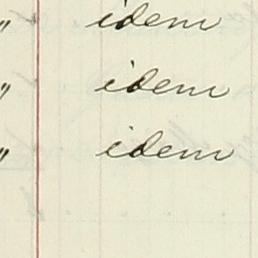 " idem
" idem
" idem